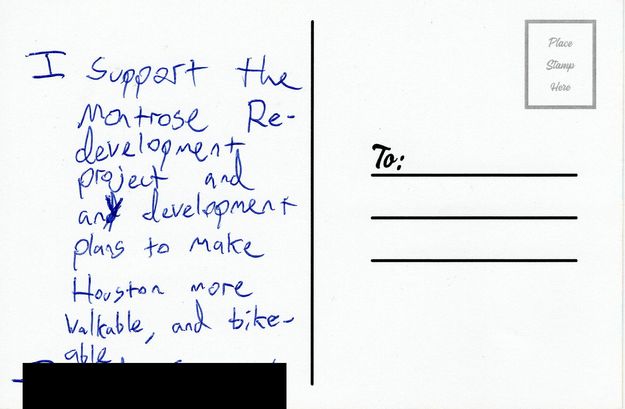 I support the
Montrose Re-
development
project and
any development
plans to make
Houston more
walkable, and bike-
able
Place
Stamp
Here
To: